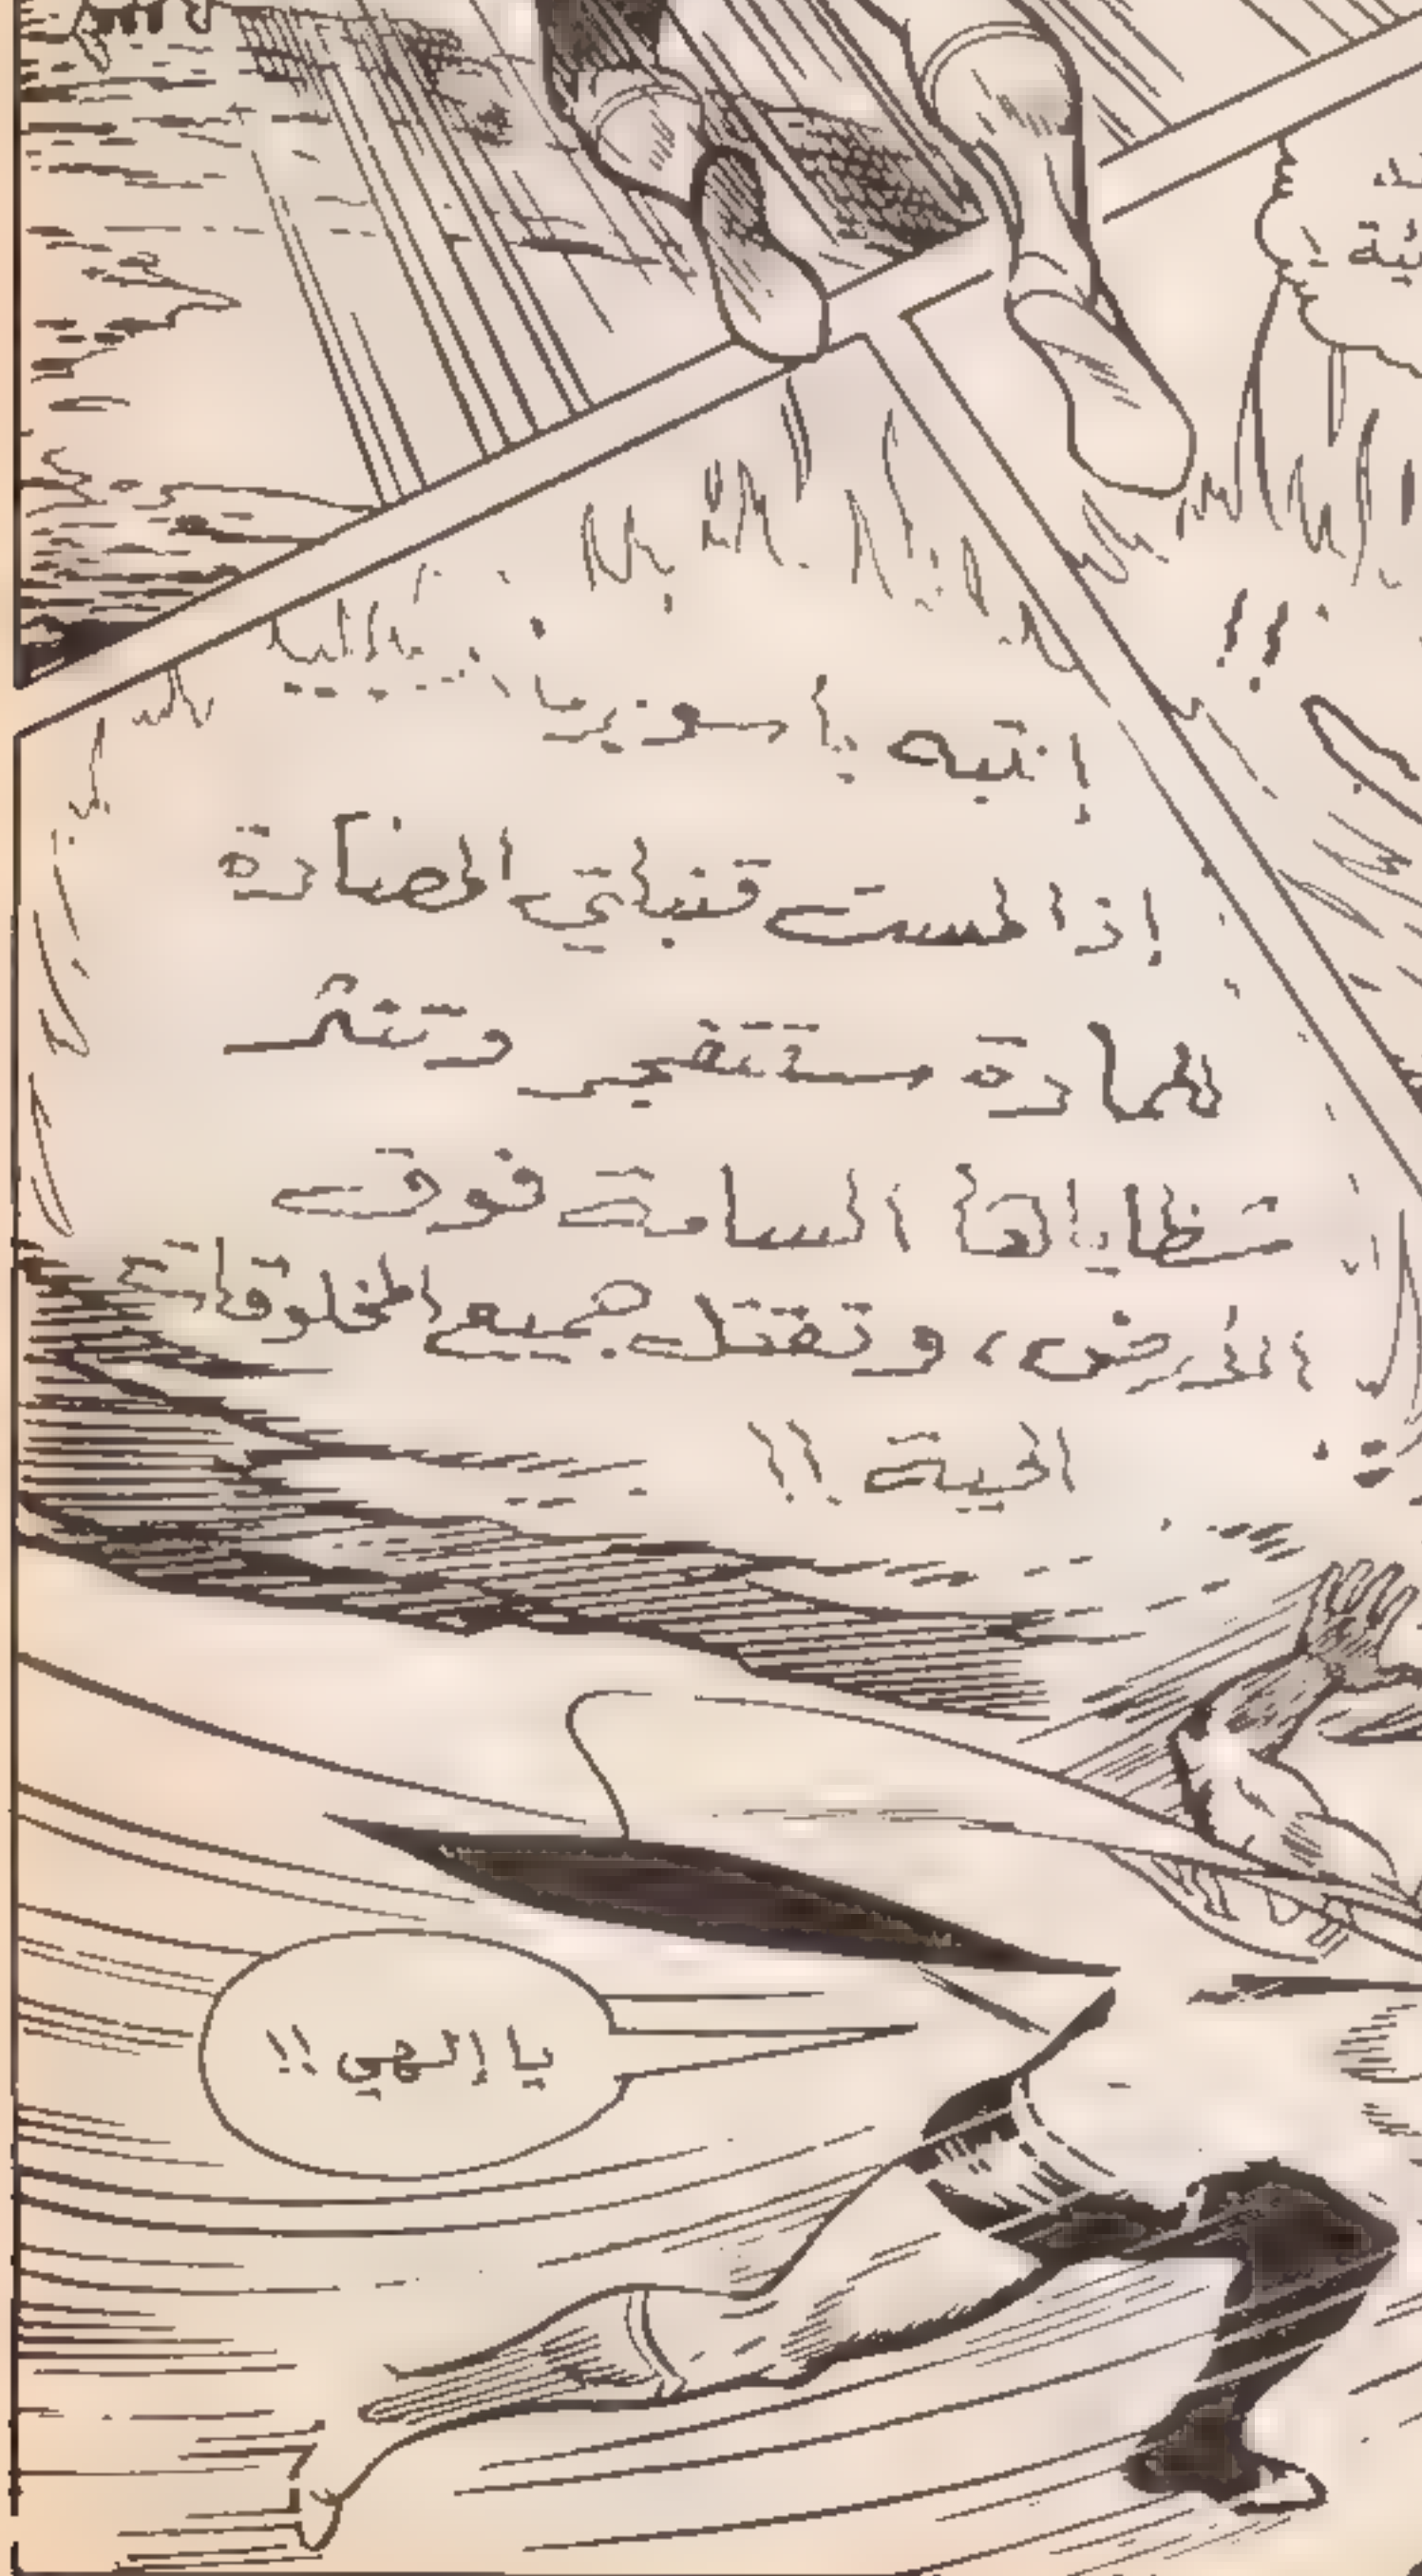 إنتبه يا سوبرمان
إذا لمست قنبلتي المضادة
للمادة ستنفجر وتنثر
شظاياها السامة فوق
الأرض، وتقتل جميع المخلوقات
الحية !!
يا إلهي !!